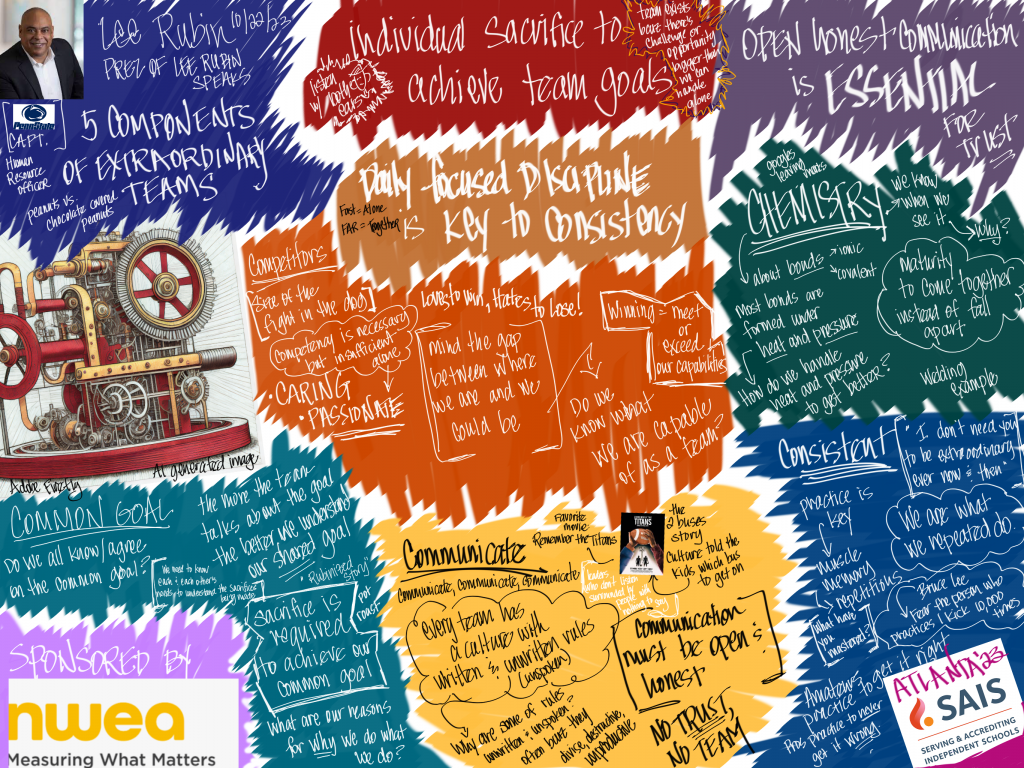 Lee Rubin 10/22/23
PREZ OF LEE RUBIN
SPEAKS
PennState
CAPT.
Human
Resource
officer
5 COMPONENTS
OF EXTRAORDINARY
TEAMS
peanuts vs.
chocolate covered
peanuts
Individual sacrifice to
achieve team goals
team exists
b/c there's
challenge or
opportunity
bigger than
we can
handle
alone
OPEN honest communication
is ESSENTIAL
FOR
TRUST
Daily focused DISCIPLINE
is key to consistency
Fast = Alone
FAR = Together
CHEMISTRY
we know
when we
see it
why?
about bonds
ionic
covalent
most bonds are
formed under
heat and pressure
How do we handle
heat and pressure
to get better?
maturity
to come together
instead of fall
apart
Welding
example
Competitors
Size of the
fight in the dog
Competency is necessary
but insufficient
alone
• CARING
• PASSIONATE
Loves to win, Hates to Lose!
mind the gap
between where
we are and we
could be
Winning = meet
or
exceed
our capabilities
Do we
know what
we are capable
of as a team?
Adobe Firefly
AI generated image
COMMON GOAL
Do we all know/agree
on the common goal?
the more the team
talks about the goal
the better we understand
our shared goal
We need to know
each & each other's
needs to understand the sacrifices
being made
Sacrifice is
required
to achieve our
common goal
What are our reasons
for why we do what
we do?
Communicate
Communicate, Communicate, Communicate
Favorite
movie:
Remember the Titans
TITANS
the
2 buses
story
Culture told the
kids which bus
to get on
leaders
who don't listen
surrounded by
people w/
nothing to say
every team has
a culture with
written & unwritten rules
(unspoken)
Why are some of rules
unwritten & unspoken?
often b/c they
divisive, destructive,
unproductive
Communication
must be open &
honest
NO TRUST,
NO TEAM
Consistent
"I don't need you
to be extraordinary
ever now & then"
practice is
key
muscle
memory
repetitions
What have
you
mastered?
We are what
we repeated do.
Bruce Lee
Fear the person who
practices 1 kick 10,000
times
Amateurs
practice to get
it right
Pros practice to never
get it wrong
SPONSORED BY
nwea
Measuring What Matters
ATLANTA '23
SAIS
SERVING & ACCREDITING
INDEPENDENT SCHOOLS